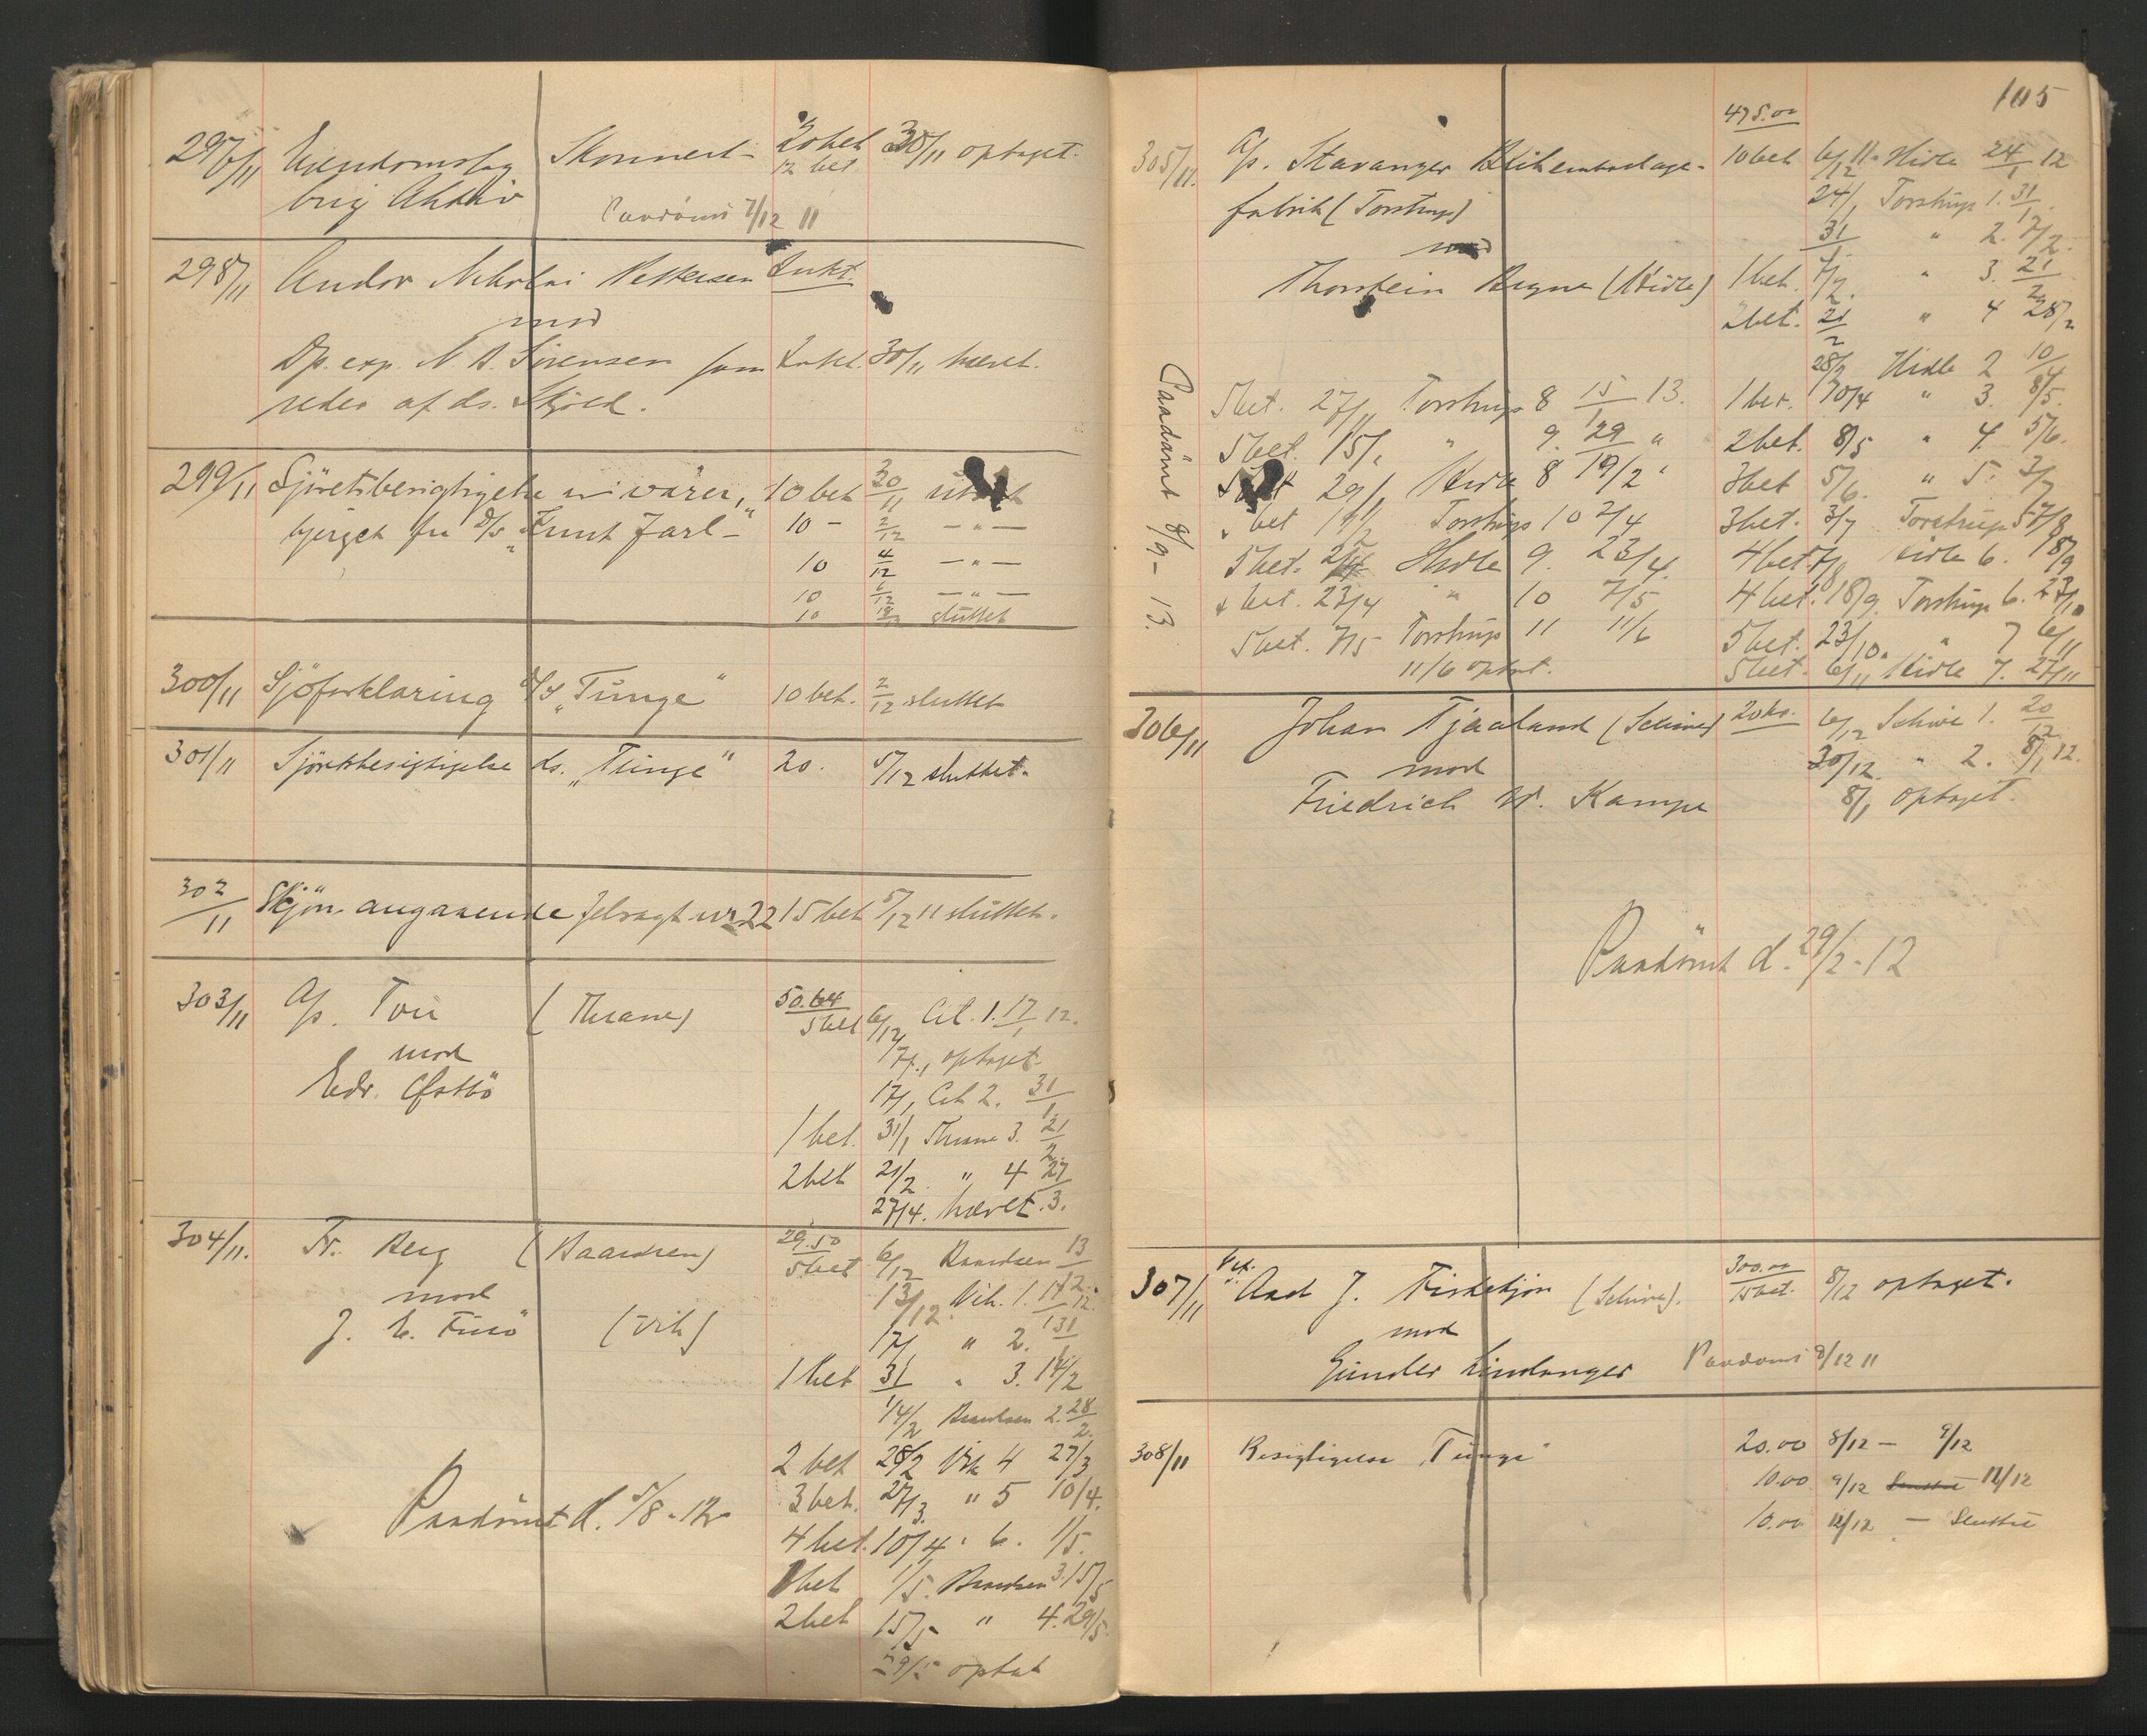 297/11 Eiendomsfog Skonnert- 20 bet 30/11 optaget.
12 bet
brig Aktiv Paadömt 7/12 11
298/11 Andor Nikolai Pettersen Inkt.
mod
Dp. exp. N. A. Sörensen som Inkt. 30/11 hævet.
reder af ds. Skjold.
299/11 Sjöretsbesigtigelse 10 bet 30/11
bjerget fra D/s „Knut Jarl" 10 - 2/12 — " —
10 4/12 — " —
10 6/12 — " —
10 sluttet
300/11 Sjöforklaring d/s „Tunge" 10 bet. 2/12 sluttet
301/11 Sjöretsbesigtigelse ds. „Tunge" 20. 5/12 sluttet.
302/11 Skjön angaaende 22 15 bet 5/12 11 sluttet.
303/11 A/s. Tou (Thrane) 50.64
5 bet 6/12 Cit. 1. 17/1 12.
mod 17/1, optaget
Edv. Østbö 17/1 Cit 2. 31/1
1 bet. 31/1 Thrane 3. 21/2
2 bet 21/2 " 4 27
27/4. hævet. 3.
304/11. Fr. Berg (Baardsen) 29.50
5 bet 6/12 Baardsen 13/12
mod 13/12 Vik. 1. 17/1 12.
J. E. (Vik) 17/1 " 2. 31/1
1 bet 31/1 " 3. 14/2
14/2 Baardsen 2. 28/2
2 bet 28/2 Vik 4 27/3
Paadömt d. 5/8-12 3 bet. 27/3. " 5 10/4.
4 bet. 10/4 " 6. 1/5.
1 bet 1/5. Baardsen 3. 15/5
2 bet 15/5 " 4. 29/5
29/5 optat
105
475.00
305/11. A/s. Stavanger Blikemballage- 10 bet 6/12 11. Hidle 24/1 12
fabrik (Torstrup) 24/1 Torstrup 1. 31/1.
mod 31/1 " 2. 7/2.
Thorstein Bryne (Hidle) 1 bet. 7/2. " 3. 21/2
2 bet. 21/2 " 4 28/2
28/2 Hidle 2 10/4
5 bet. 27/11 Torstrup 8 15/1 13. 1 bet. 10/4 " 3. 8/5.
5 bet. 15/1 " 9. 29/1 " 2 bet. 8/5 " 4. 5/6.
29/1 Hidle 8 19/2 " 3 bet 5/6. " 5. 3/7
bet 19/2 Torstrup 10 2/4 3 bet. 3/7 Torstrup 5 7/8
5 bet. 2/4 Hidle 9. 23/4. 4 bet 7/8 Hidle 6. 18/9
bet. 23/4 " 10 7/5 4 bet. 18/9. Torstrup 6. 23/10
5 bet. 7/5 Torstrup 11 11/6 5 bet. 23/10. " 7 6/11
11/6 optat. 5 bet. 6/11 Hidle 7. 27/11
Paadömt 8/9 - 13.
306/11 Johan Tjaaland (Schive) 20 kr. 6/12 Schive 1. 20/12
mod 30/12. " 2. 8/1 12.
Friedrich W. Kampe 8/1 optaget.
Paadömt d. 29/2-12
307/11 Aad J. Fisketjön (Schive). 300.00
15 bet. 8/12 optaget.
mod
Gunder Lindanger Paadömt 9/12 11
308/11 Besigtigelse „Tunge" 20.00 8/12 - 9/12
10.00 9/12 Sluttet 12/12
10.00 12/12 — Sluttet